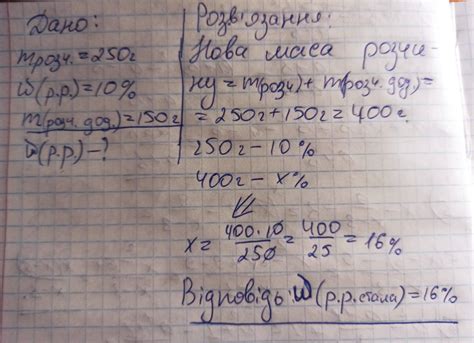 Дано:
m розч. = 250г
ω(р.р.) = 10%
m(розч. дод) = 150г
ω(р.р) - ?
Розв'язання:
Нова маса розчи-
ну = m(розч) + m(розч. дод) =
= 250г + 150г = 400г.
250г - 10%
400г - x%
x = 400·10/250 = 400/25 = 16%
Відповідь ω(р.р. стала) = 16%